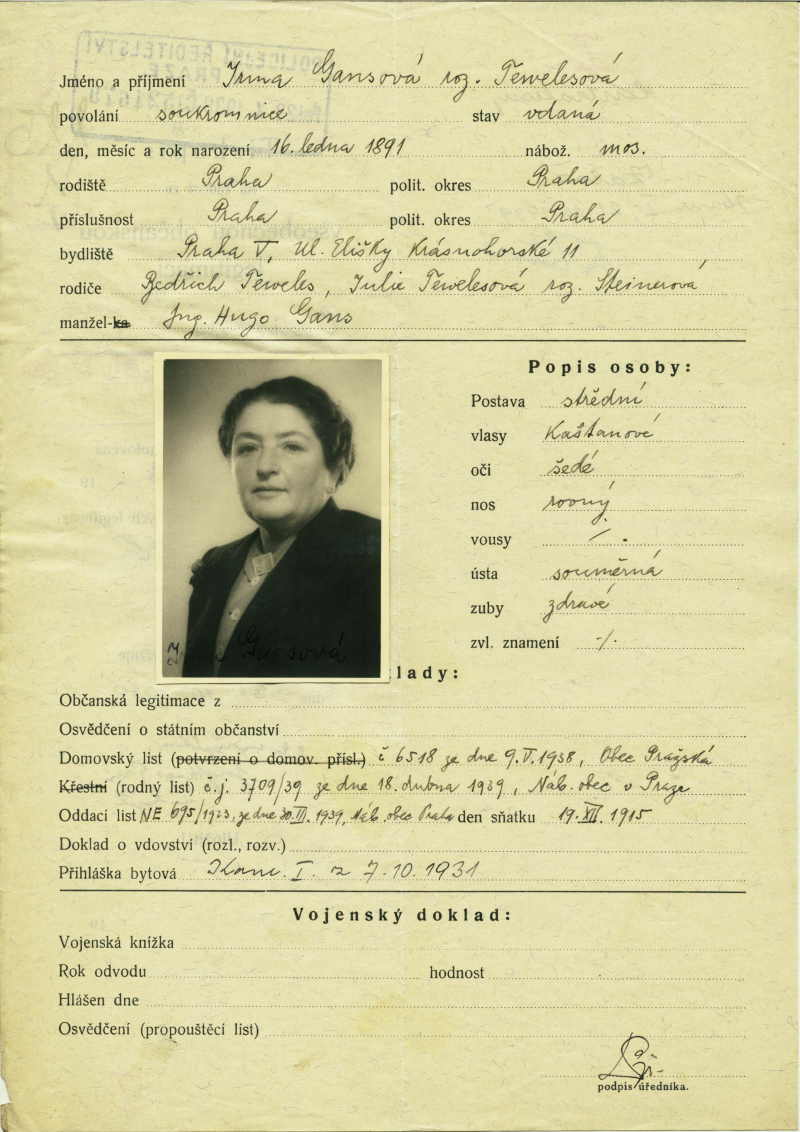 POLICEJNÍ ŘEDITELSTVÍ
Jméno a příjmení Irma Gansová roz. Tewelesová
povolání soukromnice stav vdaná
den, měsíc a rok narození 16. ledna 1891 nábož. mos.
rodiště Praha polit. okres Praha
příslušnost Praha polit. okres Praha
bydliště Praha V, Ul. Elišky Krásnohorské 11
rodiče Bedřich Teweles, Julie Tewelesová roz. Steinerová
manžel-ka Ing. Hugo Gans
Popis osoby:
Postava střední
vlasy Kaštanové
oči šedé
nos rovný
vousy /.
ústa souměrná
zuby zdravé
zvl. znamení /.
Irma Gansová
klady:
Občanská legitimace z
Osvědčení o státním občanství
Domovský list (potvrzení o domov. přísl.) č 6518 ze dne 9.V.1938, Obec Pražská
Křestní (rodný list) č.j. 3709/39 ze dne 18. dubna 1939, Náb. obec v Praze
Oddací list NE 695/1923, ze dne 30.III.1939, Náb. obec Praha den sňatku 19.XII.1915
Doklad o vdovství (rozl., rozv.)
Přihláška bytová Kom. I. z 7.10.1931
Vojenský doklad:
Vojenská knížka
Rok odvodu hodnost
Hlášen dne
Osvědčení (propouštěcí list)
podpis úředníka.